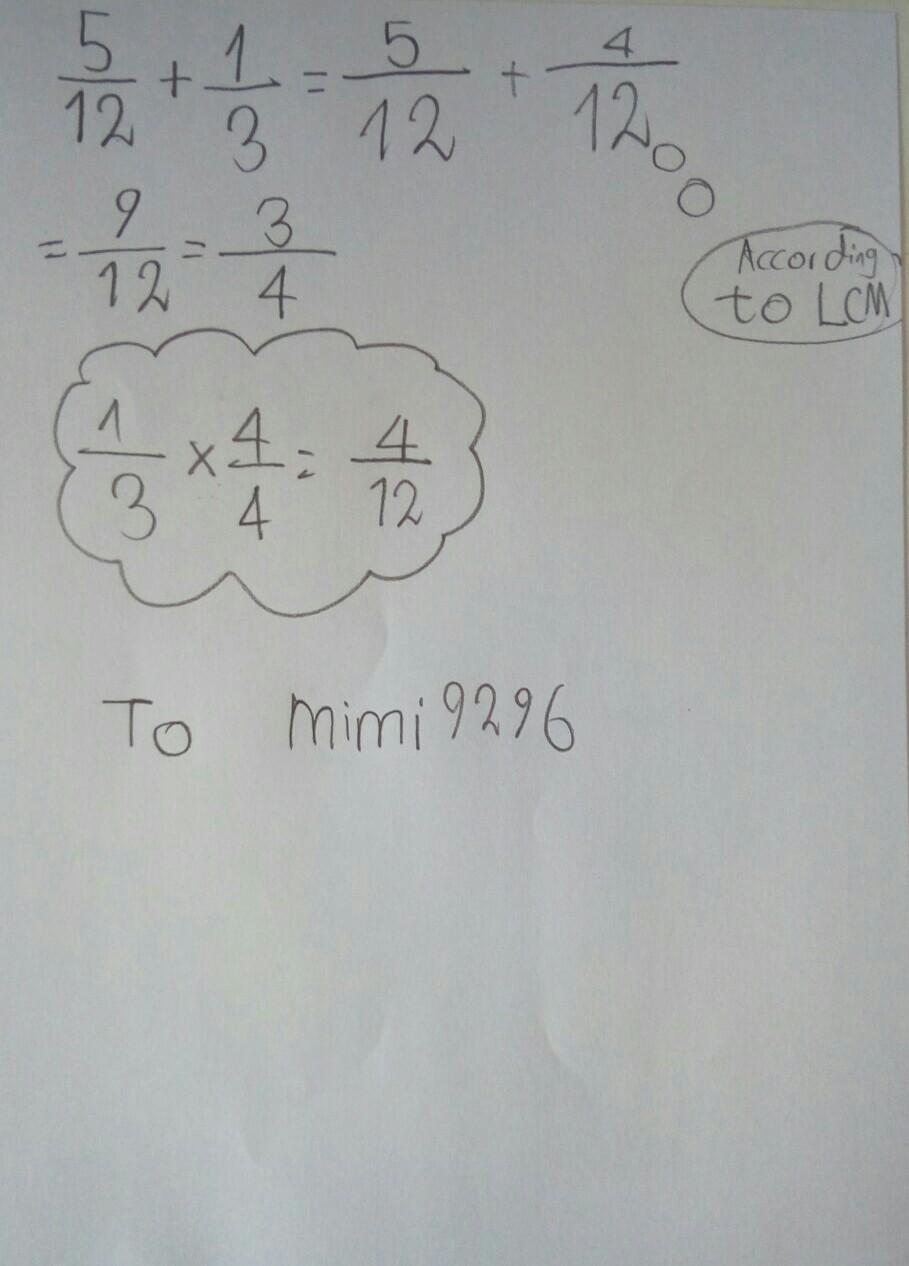 5/12 + 1/3 = 5/12 + 4/12
= 9/12 = 3/4
According
to LCM
1/3 × 4/4 = 4/12
To mimi9296